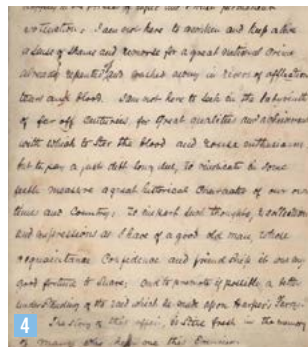 motivation; I am not here to awaken and keep alive
a sense of shame and remorse for a great national crime
already repented and washed away in rivers of affliction
tears and blood. I am not here to seek in the labyrinth
of far off centuries, for great qualities and achievements
with which to stir the blood and rouse enthusiasm
but to pay a just debt long due, to vindicate in some
feeble measure a great historical character of our own
times and Country; to impart such thoughts, recollections
and impressions as I have of a good old man, whose
acquaintance Confidence and friendship it was my
good fortune to share; and to promote if possible, a better
understanding of the raid which he made upon Harper's Ferry.
The story of this affair, is still fresh in the memory
of many who hear me this Evening.
4